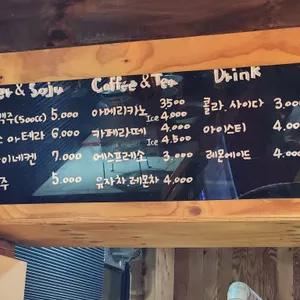 & Soju
(500cc) 5.000
아테라 6.000
이네켄 7.000
주 5.000
Coffee & Tea
아메리카노 3500
Ice 4.000
카페라떼 4.000
Ice 4.500
에스프레소 3.000
유자차 레몬차 4.000
Drink
콜라.사이다 3.000
아이스티 4.000
레몬에이드 4.000